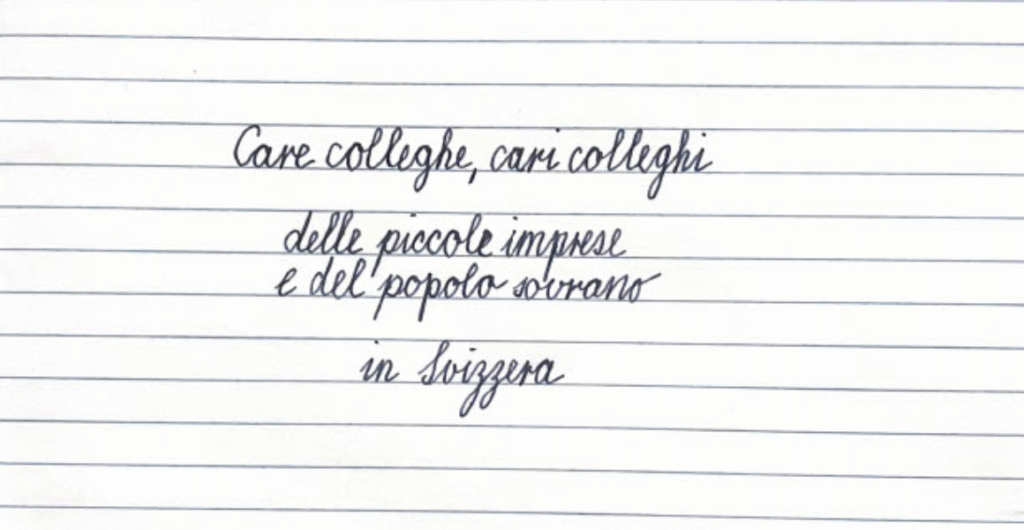 Care colleghe, cari colleghi
delle piccole imprese
e del popolo sovrano
in Svizzera